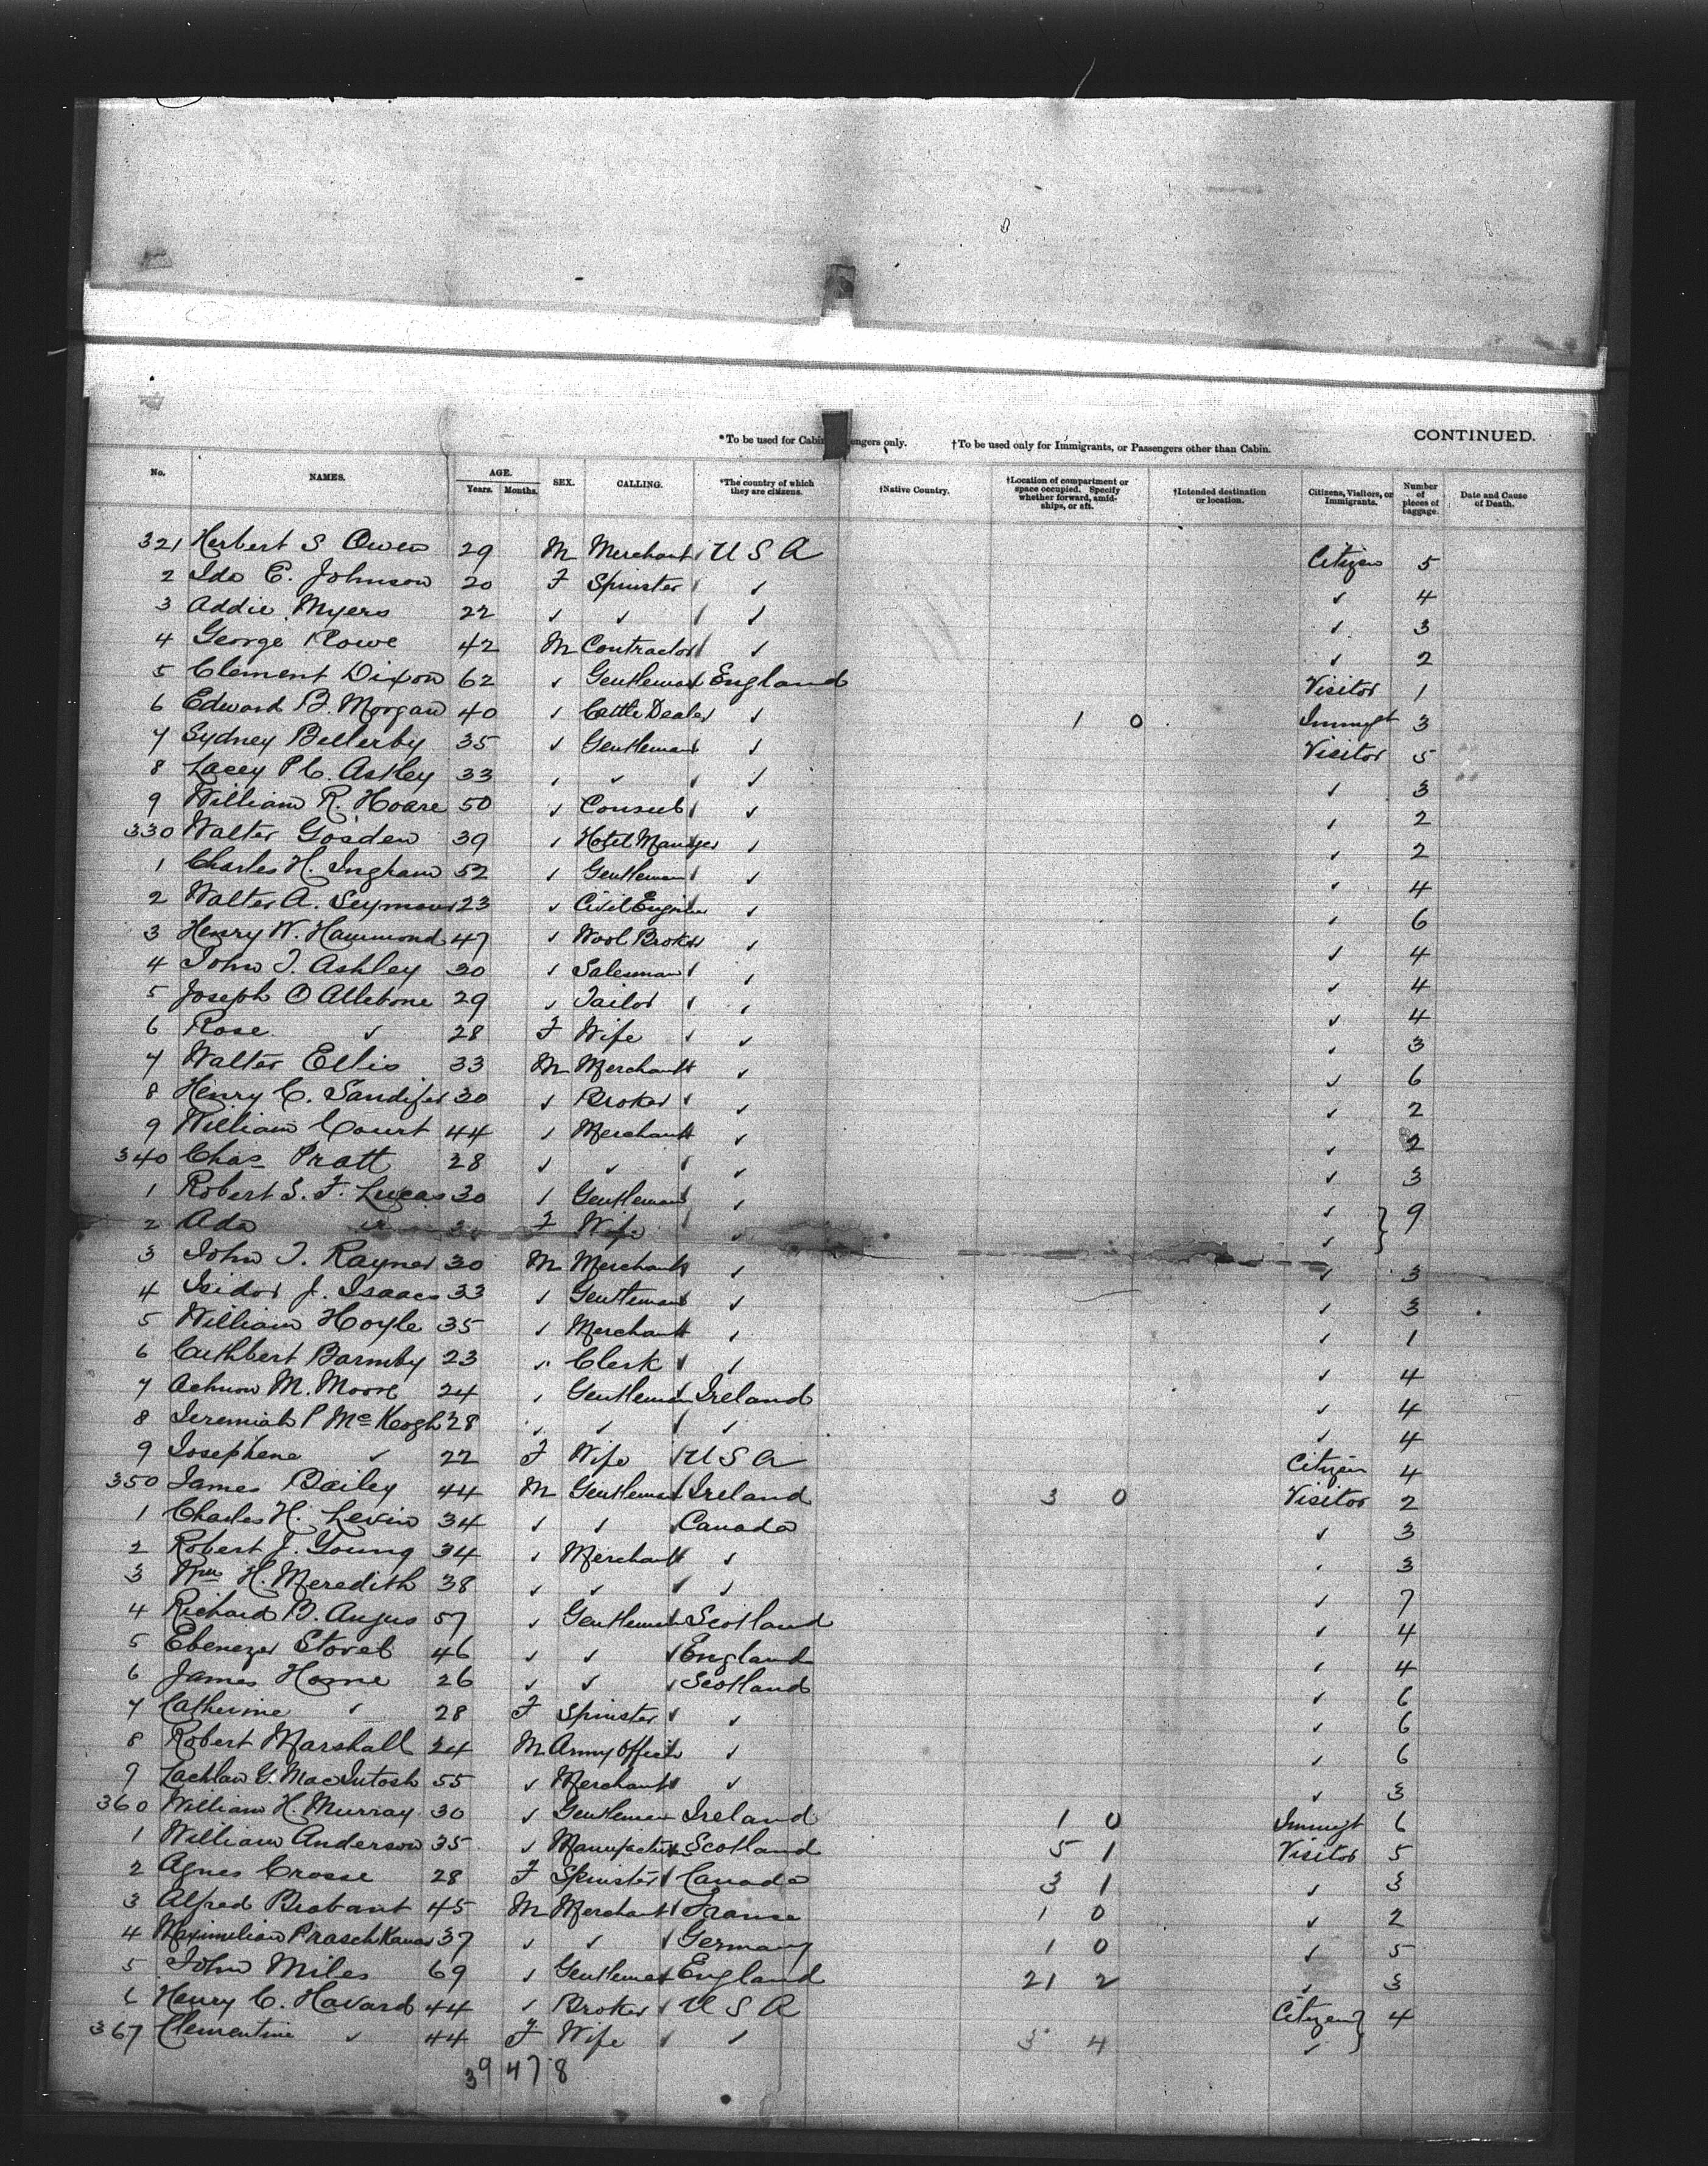 *To be used for Cabin engers only. †To be used only for Immigrants, or Passengers other than Cabin. CONTINUED.
No. NAMES. AGE. Years. Months. SEX. CALLING. *The country of which they are citizens. †Native Country. †Location of compartment or space occupied. Specify whether forward, amidships, or aft. †Intended destination or location. Citizens, Visitors, or Immigrants. Number of pieces of baggage. Date and Cause of Death.
321 Herbert S Owen 29 M Merchant U S A Citizen 5
2 Ida E. Johnson 20 F Spinster ✓ ✓ 4
3 Addie Myers 22 ✓ ✓ ✓ ✓ 3
4 George Rowe 42 M Contractor ✓ ✓ 2
5 Clement Dixon 62 ✓ Gentleman England Visitor 1
6 Edward B. Morgan 40 ✓ Cattle Dealer ✓ 1 0 Immigt 3
7 Sydney Bellerby 35 ✓ Gentleman ✓ Visitor 5
8 Lacey P C. Astley 33 ✓ ✓ ✓ ✓ 3
9 William R. Hoare 50 ✓ Consul ✓ ✓ 2
330 Walter Gosden 39 ✓ Hotel Manager ✓ ✓ 2
1 Charles H. Ingham 52 ✓ Gentleman ✓ ✓ 4
2 Walter A. Seymour 23 ✓ Civil Engineer ✓ ✓ 6
3 Henry W. Hammond 47 ✓ Wool Broker ✓ ✓ 4
4 John J. Ashley 30 ✓ Salesman ✓ ✓ 4
5 Joseph O Allebone 29 ✓ Tailor ✓ ✓ 4
6 Rose ✓ 28 F Wife ✓ ✓ 3
7 Walter Ellis 33 M Merchant ✓ ✓ 6
8 Henry C. Sandifer 30 ✓ Broker ✓ ✓ 2
9 William Court 44 ✓ Merchant ✓ ✓ 2
340 Chas Pratt 28 ✓ ✓ ✓ ✓ 3
1 Robert S. F. Lucas 30 ✓ Gentleman ✓ ✓ } 9
2 Ada F Wife ✓ ✓
3 John J. Rayner 30 M Merchant ✓ ✓ 3
4 Isidor J. Isaacs 33 ✓ Gentleman ✓ ✓ 3
5 William Hoyle 35 ✓ Merchant ✓ ✓ 1
6 Cuthbert Barmby 23 ✓ Clerk ✓ ✓ 4
7 M. Moore 24 ✓ Gentleman Ireland ✓ 4
8 Jeremiah P McKeogh 28 ✓ ✓ ✓ ✓ 4
9 Josephene ✓ 22 F Wife U S A Citizen 4
350 James Bailey 44 M Gentleman Ireland 3 0 Visitor 2
1 Charles H. Levin 34 ✓ ✓ Canada ✓ 3
2 Robert J. Young 34 ✓ Merchant ✓ ✓ 3
3 Wm H. Meredith 38 ✓ ✓ ✓ ✓ 7
4 Richard B. Angus 57 ✓ Gentleman Scotland ✓ 4
5 Ebenezer Storet 46 ✓ ✓ England ✓ 4
6 James Horne 26 ✓ ✓ Scotland ✓ 6
7 Catherine ✓ 28 F Spinster ✓ ✓ 6
8 Robert Marshall 24 M Army Officer ✓ ✓ 6
9 Lachlan G. MacIntosh 55 ✓ Merchant ✓ ✓ 3
360 William H. Murray 30 ✓ Gentleman Ireland 1 0 Immigt 6
1 William Anderson 35 ✓ Manufacturer Scotland 5 1 Visitor 5
2 Agnes Crosse 28 F Spinster Canada 3 1 ✓ 3
3 Alfred Brabant 45 M Merchant France 1 0 ✓ 2
4 Maximilian 37 ✓ ✓ Germany 1 0 ✓ 5
5 John Miles 69 ✓ Gentleman England 21 2 ✓ 3
6 Henry C. Havard 44 ✓ Broker U S A Citizen } 4
367 Clementine ✓ 44 F Wife ✓ 3 4 ✓
39 47 8